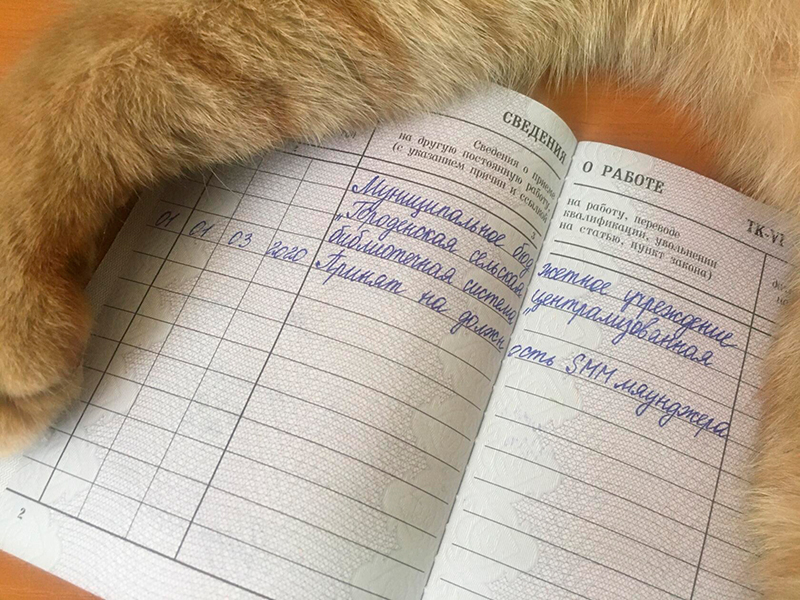 СВЕДЕНИЯ
Сведения о приеме
на другую постоянную работу,
(с указанием причин и ссылкой
3
О РАБОТЕ
ТК-VI
на работу, переводе
квалификации, увольнении
на статью, пункт закона)
Муниципальное бюджетное учреждение
„Городенская сельская централизованная
библиотечная система„
01 01 03 2020 Принят на должность SMM мяунджера
2